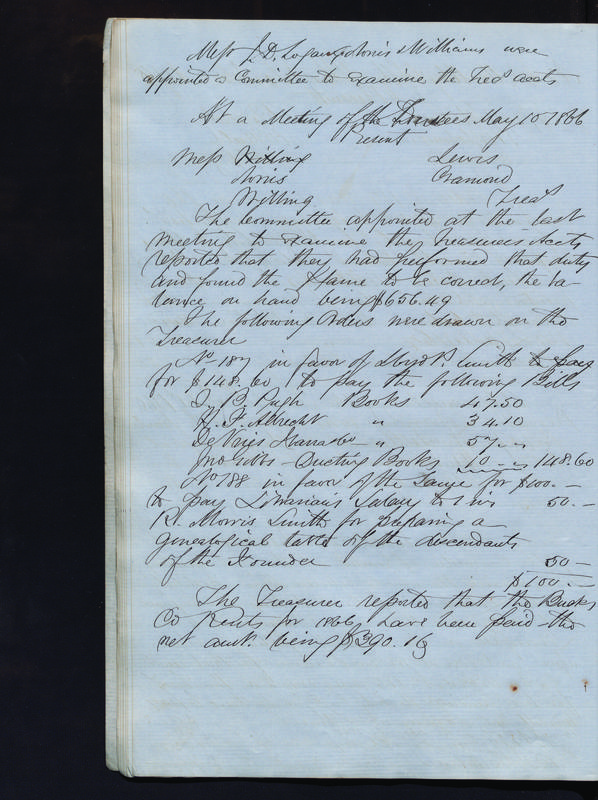 Mess J. D. Logan Norris & Williams were
appointed a Committee to examine the Treas accts
At a Meeting of the Trustees May 10 1866
Present
Mess Willing Lewis
Norris Cramond
Willing Treas
The Committee appointed at the last
meeting to examine the Treasurers Accts
reported that they had performed that duty
and found the same to be correct, the ba-
lance on hand being $656.49
The following Orders were drawn on the
Treasurer
No 187 in favor of Lloyd P. Smith to pay
for $148.60 to pay the following Bills
J. B. Pugh Books 47.50
H. F. Albrecht " 34.10
De Vries Ibarra & Co - " 57 - "
Jno Gibbs - Dusting Books 10 - " 148.60
No 188 in favor of the same for $100. -
to pay Librarians Salary to 1 inst 50. -
R. Morris Smith for preparing a
genealogical table of the descendants
of the Founder 50 -
$100. -
The Treasurer reported that the Bucks
Co Rents for 1866 have been paid the
net amt. being $390.16